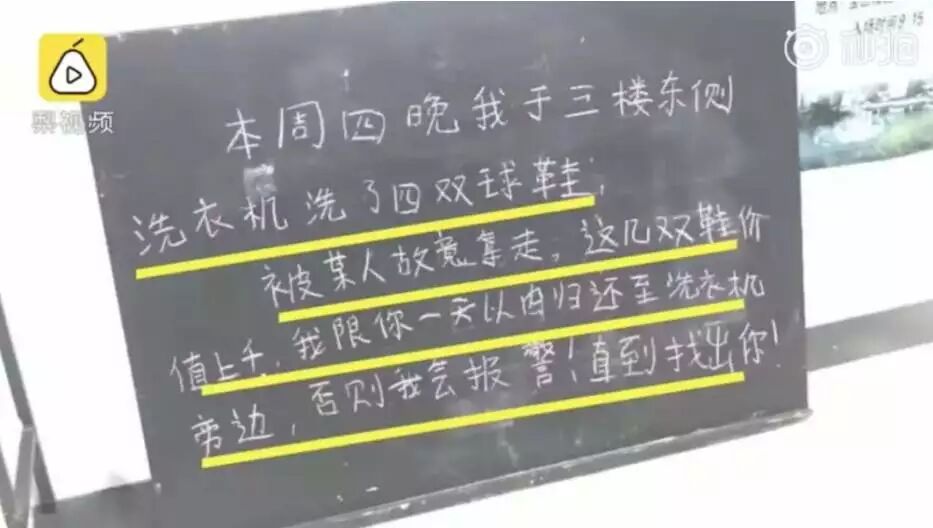 梨视频
秒拍
入场时间9:15
本周四晚我于三楼东侧
洗衣机洗了四双球鞋;
被某人故意拿走,这几双鞋价
值上千,我限你一天以内归还至洗衣机
旁边,否则我会报警!直到找出你!